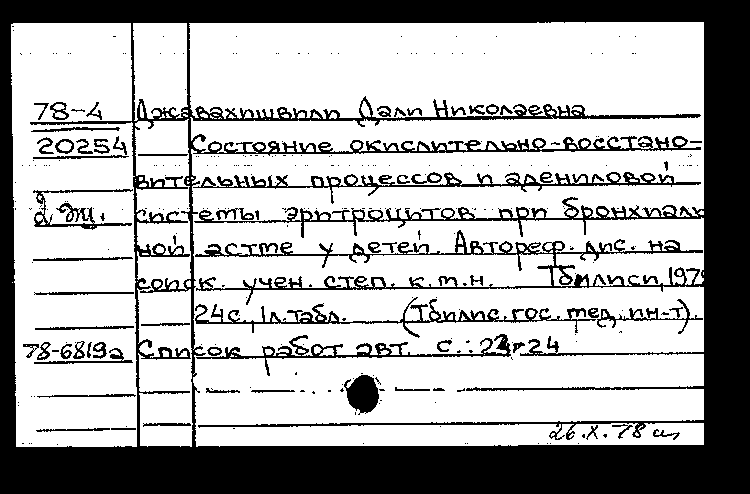 78-4 Джавахишвили Дали Николаевна
20254 Состояние окислительно-восстано-
вительных процессов и адениловой
2 экз. системы эритроцитов при бронхиаль
ной астме у детей. Автореф. дис. на
соиск. учен. степ. к.м.н. Тбилиси, 197
24с., 1л.табл. (Тбилис. гос. мед. ин-т).
78-6819а Список работ авт. с.: 24
26.X.78